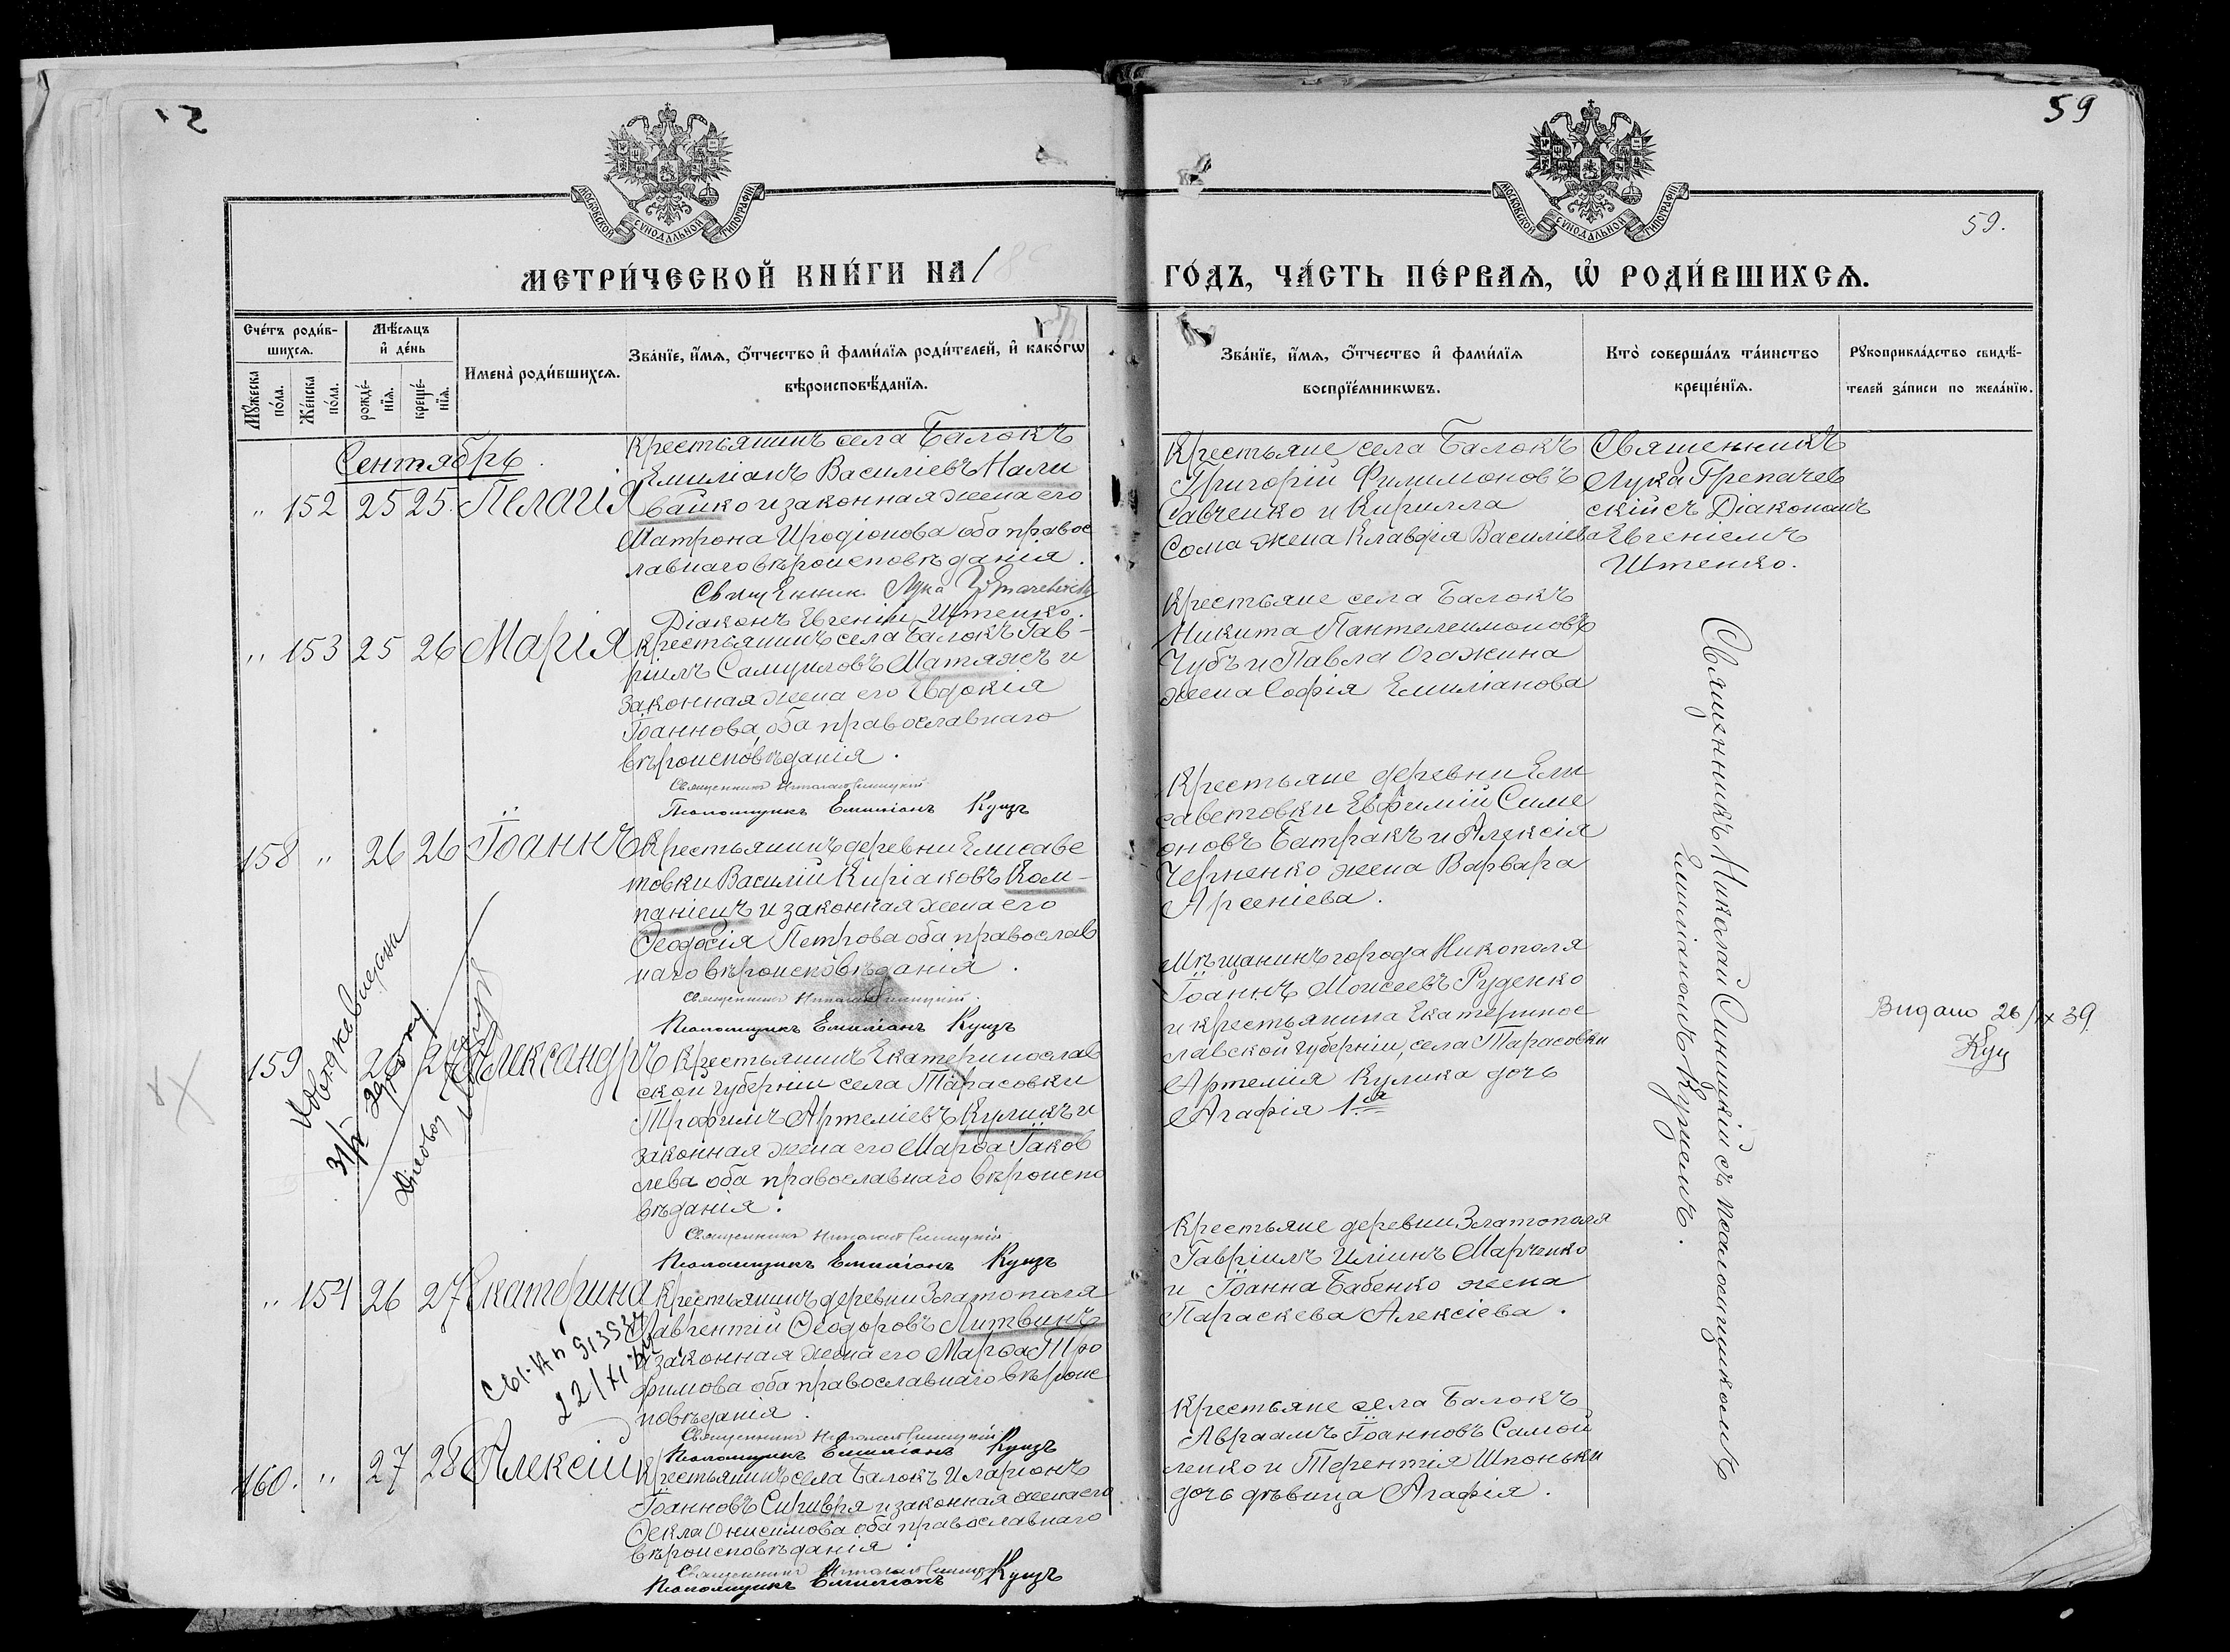 59
МОСКОВСКОЙ СѴНОДАЛЬНОЙ ТИПОГРАФІИ
МОСКОВСКОЙ СѴНОДАЛЬНОЙ ТИПОГРАФІИ
59.
МЕТРИ́ЧЕСКОЙ КНИ́ГИ НА 18
ГО́ДЪ, ЧА́СТЬ ПЕ́РВАѦ, Ѡ҆ РОДИ́ВШИХСѦ.
Сче́тъ роди́в-
шихсѧ.
Мꙋ́жеска по́ла.
Же́нска по́ла.
Мѣ́сѧцъ
и҆ де́нь
рожде́-
нїѧ.
креще́-
нїѧ.
Имена̀ роди́вшихсѧ.
Зва́нїе, и҆́мѧ, ѻ҆́тчество и҆ фами́лїѧ роди́телей, и҆ како́гѡ
вѣроисповѣ́данїѧ.
Зва́нїе, и҆́мѧ, ѻ҆́тчество и҆ фами́лїѧ
воспрїе́мникѡвъ.
Кто̀ соверша́лъ та́инство
креще́нїѧ.
Рꙋкоприкла́дство свидѣ́-
телей за́писи по жела́нїю.
Сентябрь.
" 152 25 25. Пелагія
Крестьянинъ села Балокъ
Емиліанъ Василіевъ Нали
вайко и законная жена его
Матрона Иродіонова оба правос
лавнаго вѣроисповѣданія.
Священник Лука
Діаконъ Евгеній Штенко.
Крестьяне села Балокъ
Григорій Филимоновъ
Савченко и Кирилла
Сома жена Клавдія Василіева
Священникъ
Лука Грепачев
скій съ Діакономъ
Евгеніемъ
Штенко.
" 153 25 26 Марія
Крестьянинъ села Балокъ Гав-
ріилъ Самуиловъ Матяжъ и
законная жена его Евдокія
Іоаннова, оба православнаго
вѣроисповѣданія.
Священникъ Николай Синицкій
Псаломщикъ Емиліанъ Куцъ
Крестьяне села Балокъ
Никита Пантелеимоновъ
Чубъ и Павла Огажина
жена Софія Емиліанова
158 " 26 26 Іоаннъ
Крестьянинъ деревни Елисаве
товки Василій Киріаковъ Ком-
паніецъ и законная жена его
Ѳеодосія Петрова оба православ
наго вѣроисповѣданія.
Священникъ Николай Синицкій.
Псаломщикъ Емиліанъ Куцъ
Крестьяне деревни Ели
саветовки Евфимій Симе
оновъ Батракъ и Алексія
Черненко жена Варвара
Арсеніева.
Священникъ Николай Синицкій съ псаломщикомъ
Емиліаномъ Куцемъ.
159 26 27 Александръ
Крестьянинъ Екатеринослав
ской губерніи села Тарасовки
Трофимъ Артеміевъ Куликъ и
законная жена его Марѳа Іаков
лева оба православнаго вѣроиспо
вѣданія.
Священникъ Николай Синицкій
Псаломщикъ Емиліанъ Куцъ
Мѣщанинъ города Никополя
Іоаннъ Моисеевъ Руденко
и крестьянина Екатеринос
лавской губерніи, села Тарасовки
Артемія Кулика дочь
Агафія 1ая
Видано 26/IX 39.
Куц
" 154 26 27 Екатерина
Крестьянинъ деревни Златополя
Лаврентій Ѳеодоровъ Литвинъ
и законная жена его Марѳа Тро
фимова оба православнаго вѣроис
повѣданія.
Священникъ Николай Синицкій
Псаломщикъ Емиліанъ Куцъ
22/XI
Крестьяне деревни Златополя
Гавріилъ Иліинъ Марченко
и Іоанна Бабенко жена
Параскева Алексіева.
160. " 27 28 Алексій
Крестьянинъ села Балокъ Иларіонъ
Іоанновъ Сиривря и законная жена его
Ѳекла Онисимова оба православнаго
вѣроисповѣданія.
Священникъ Николай Синицкій
Псаломщикъ Емиліанъ Куцъ
Крестьяне села Балокъ
Авраамъ Іоанновъ Самой
ленко и Терентія Шпоньки
дочь дѣвица Агафія.